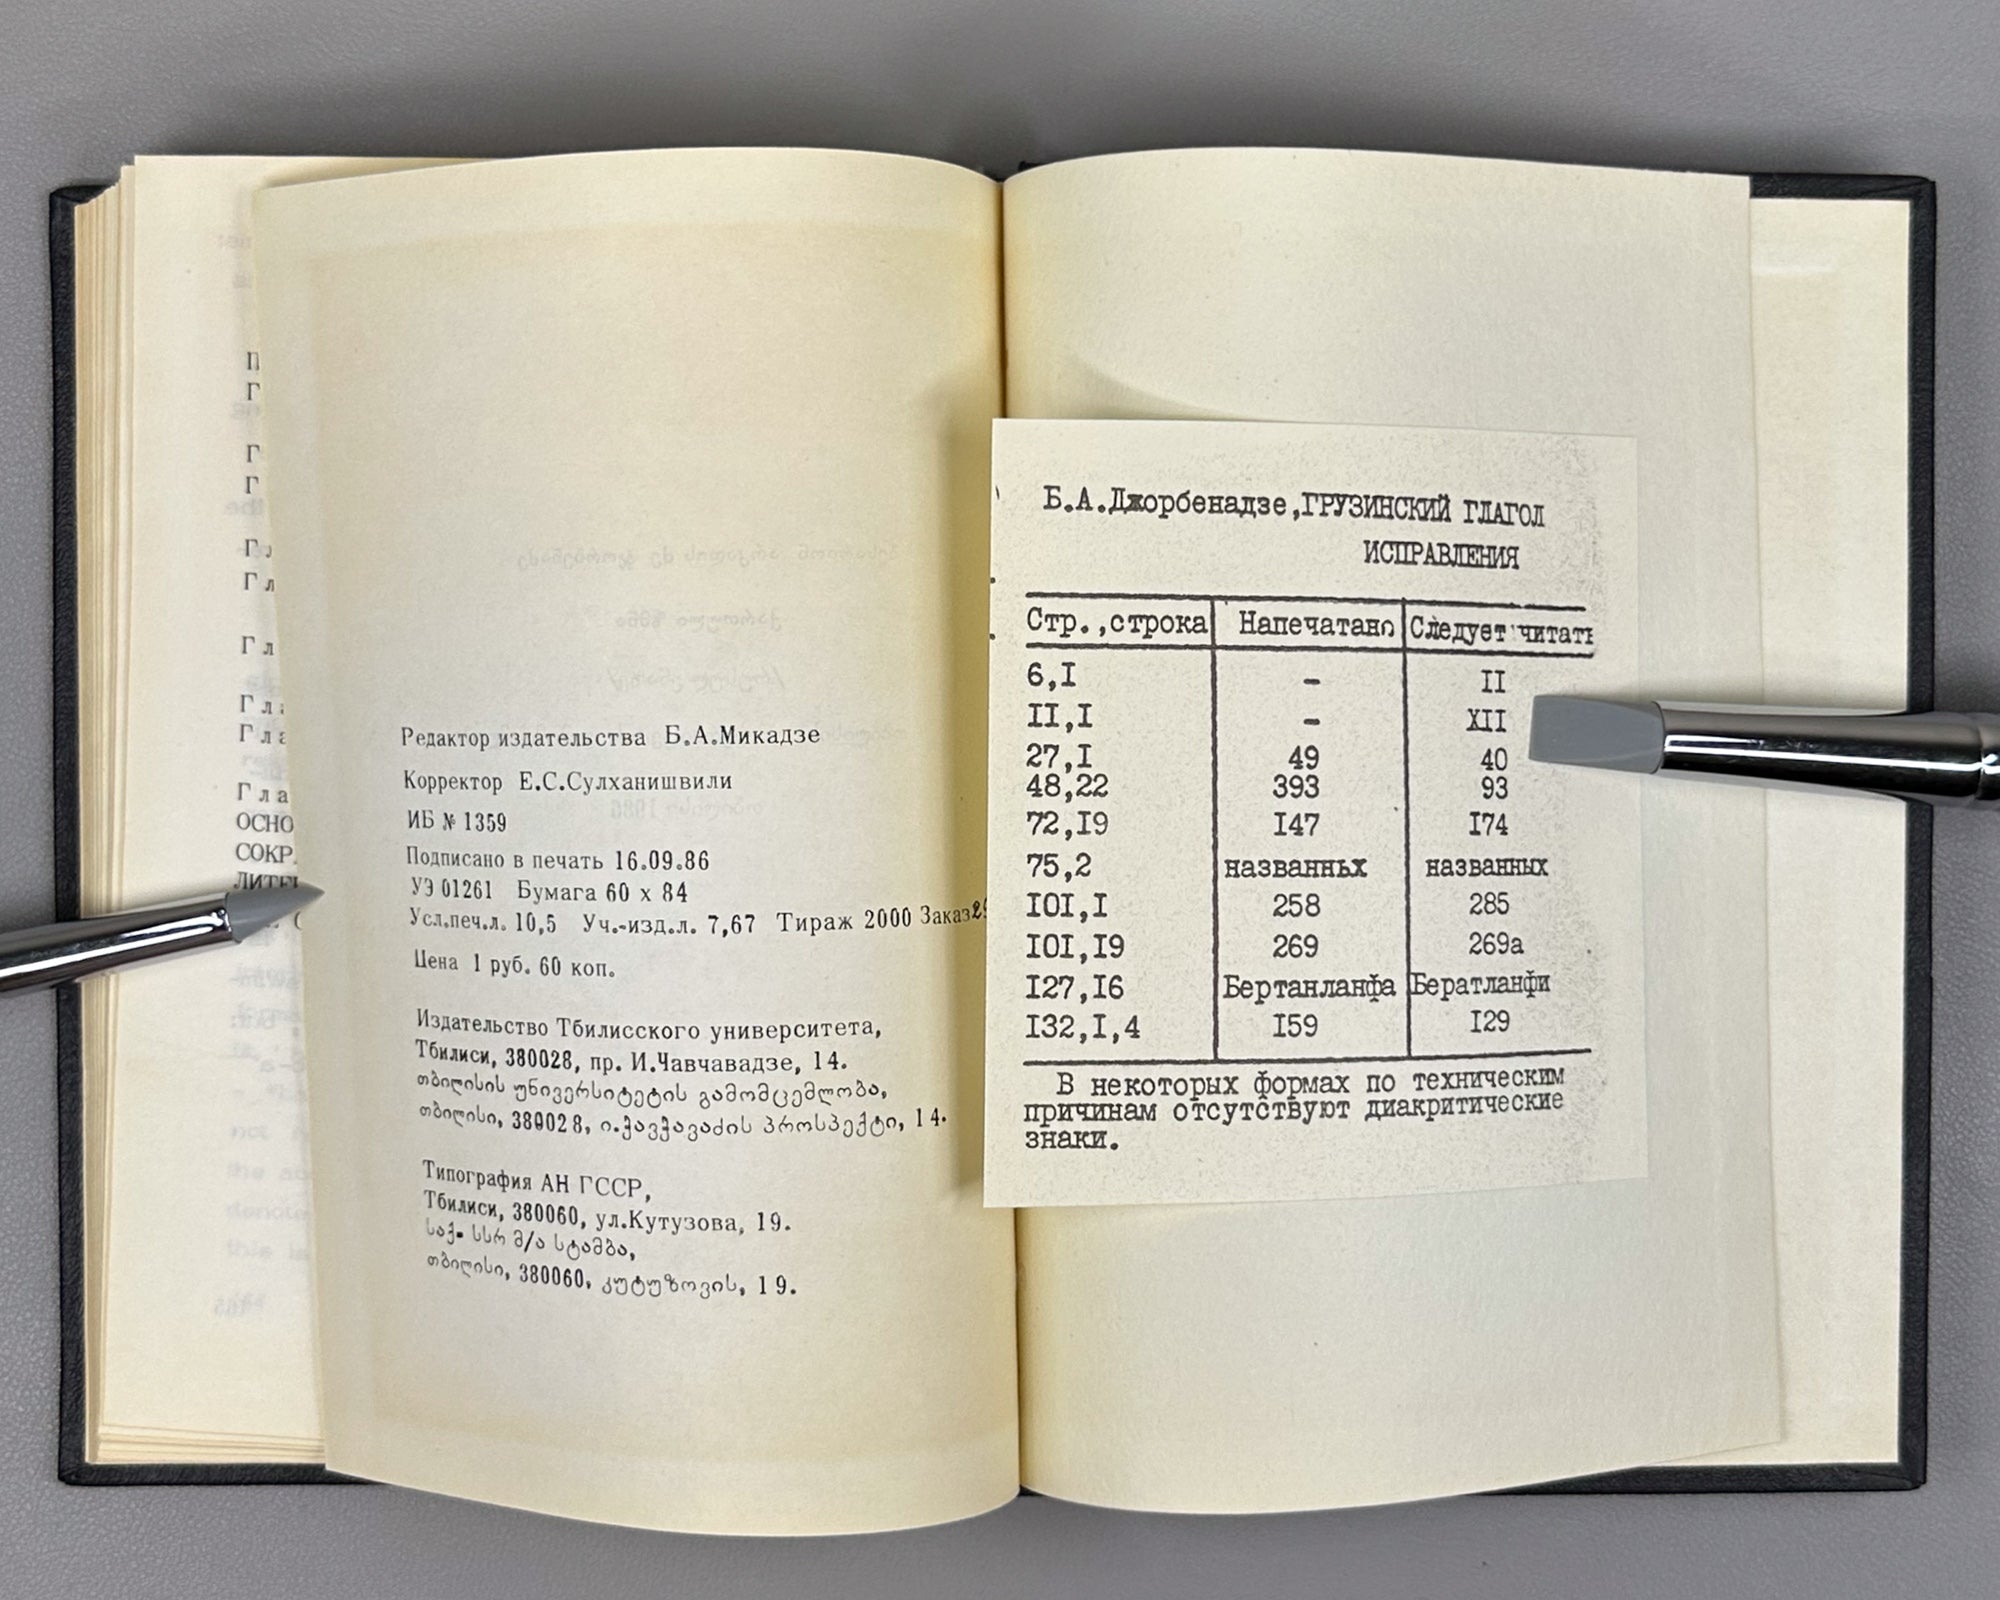 Редактор издательства Б.А.Микадзе
Корректор Е.С.Сулханишвили
ИБ № 1359
Подписано в печать 16.09.86
УЭ 01261 Бумага 60 х 84
Усл.печ.л. 10,5 Уч.-изд.л. 7,67 Тираж 2000 Заказ
Цена 1 руб. 60 коп.
Издательство Тбилисского университета,
Тбилиси, 380028, пр. И.Чавчавадзе, 14.
თბილისის უნივერსიტეტის გამომცემლობა,
თბილისი, 380028, ი.ჭავჭავაძის პროსპექტი, 14.
Типография АН ГССР,
Тбилиси, 380060, ул.Кутузова, 19.
საქ. სსრ მ/ა სტამბა,
თბილისი, 380060, კუტუზოვის, 19.
Б.А.Джорбенадзе,ГРУЗИНСКИЙ ГЛАГОЛ
ИСПРАВЛЕНИЯ
Стр.,строка Напечатано Следует читать
6,I - II
II,I - XII
27,I 49 40
48,22 393 93
72,I9 I47 I74
75,2 названньх названных
IOI,I 258 285
IOI,I9 269 269а
I27,I6 Бертанланфа Бератланфи
I32,I,4 I59 I29
В некоторых формах по техническим
причинам отсутствуют диакритические
знаки.